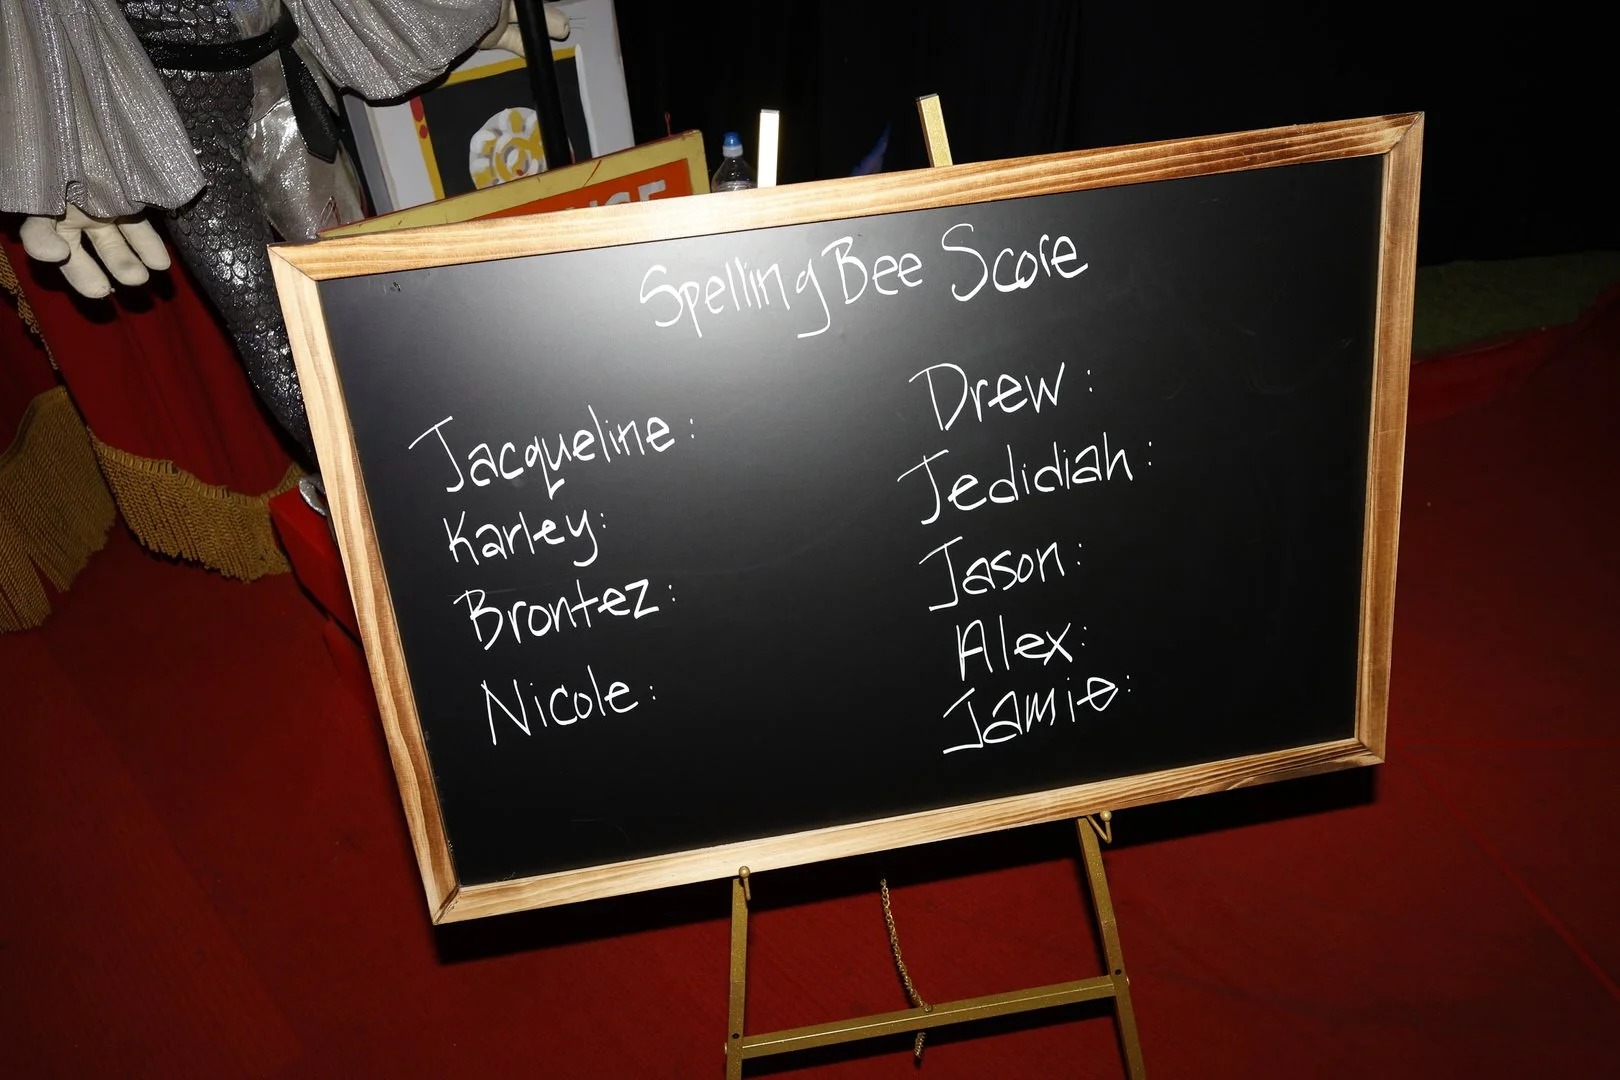 Spelling Bee Score
Jacqueline:
Karley:
Brontez:
Nicole:
Drew:
Jedidiah:
Jason:
Alex:
Jamie: